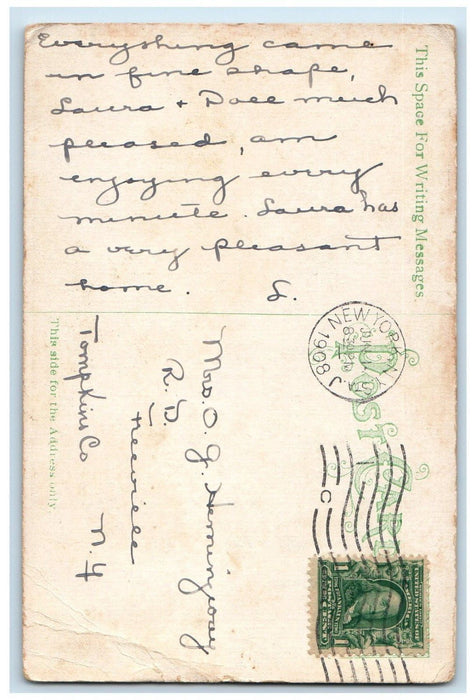 Everything came
in fine shape,
Laura + Doll much
pleased, am
enjoying every
minute. Laura has
a very pleasant
home. L.
This Space For Writing Messages.
This side for the Address only.
Post Card
NEW YORK, N.Y.
JUN
8
1908
C
Mrs O. J. Hemingway
R. D.
Freeville
Tompkins Co
N. Y